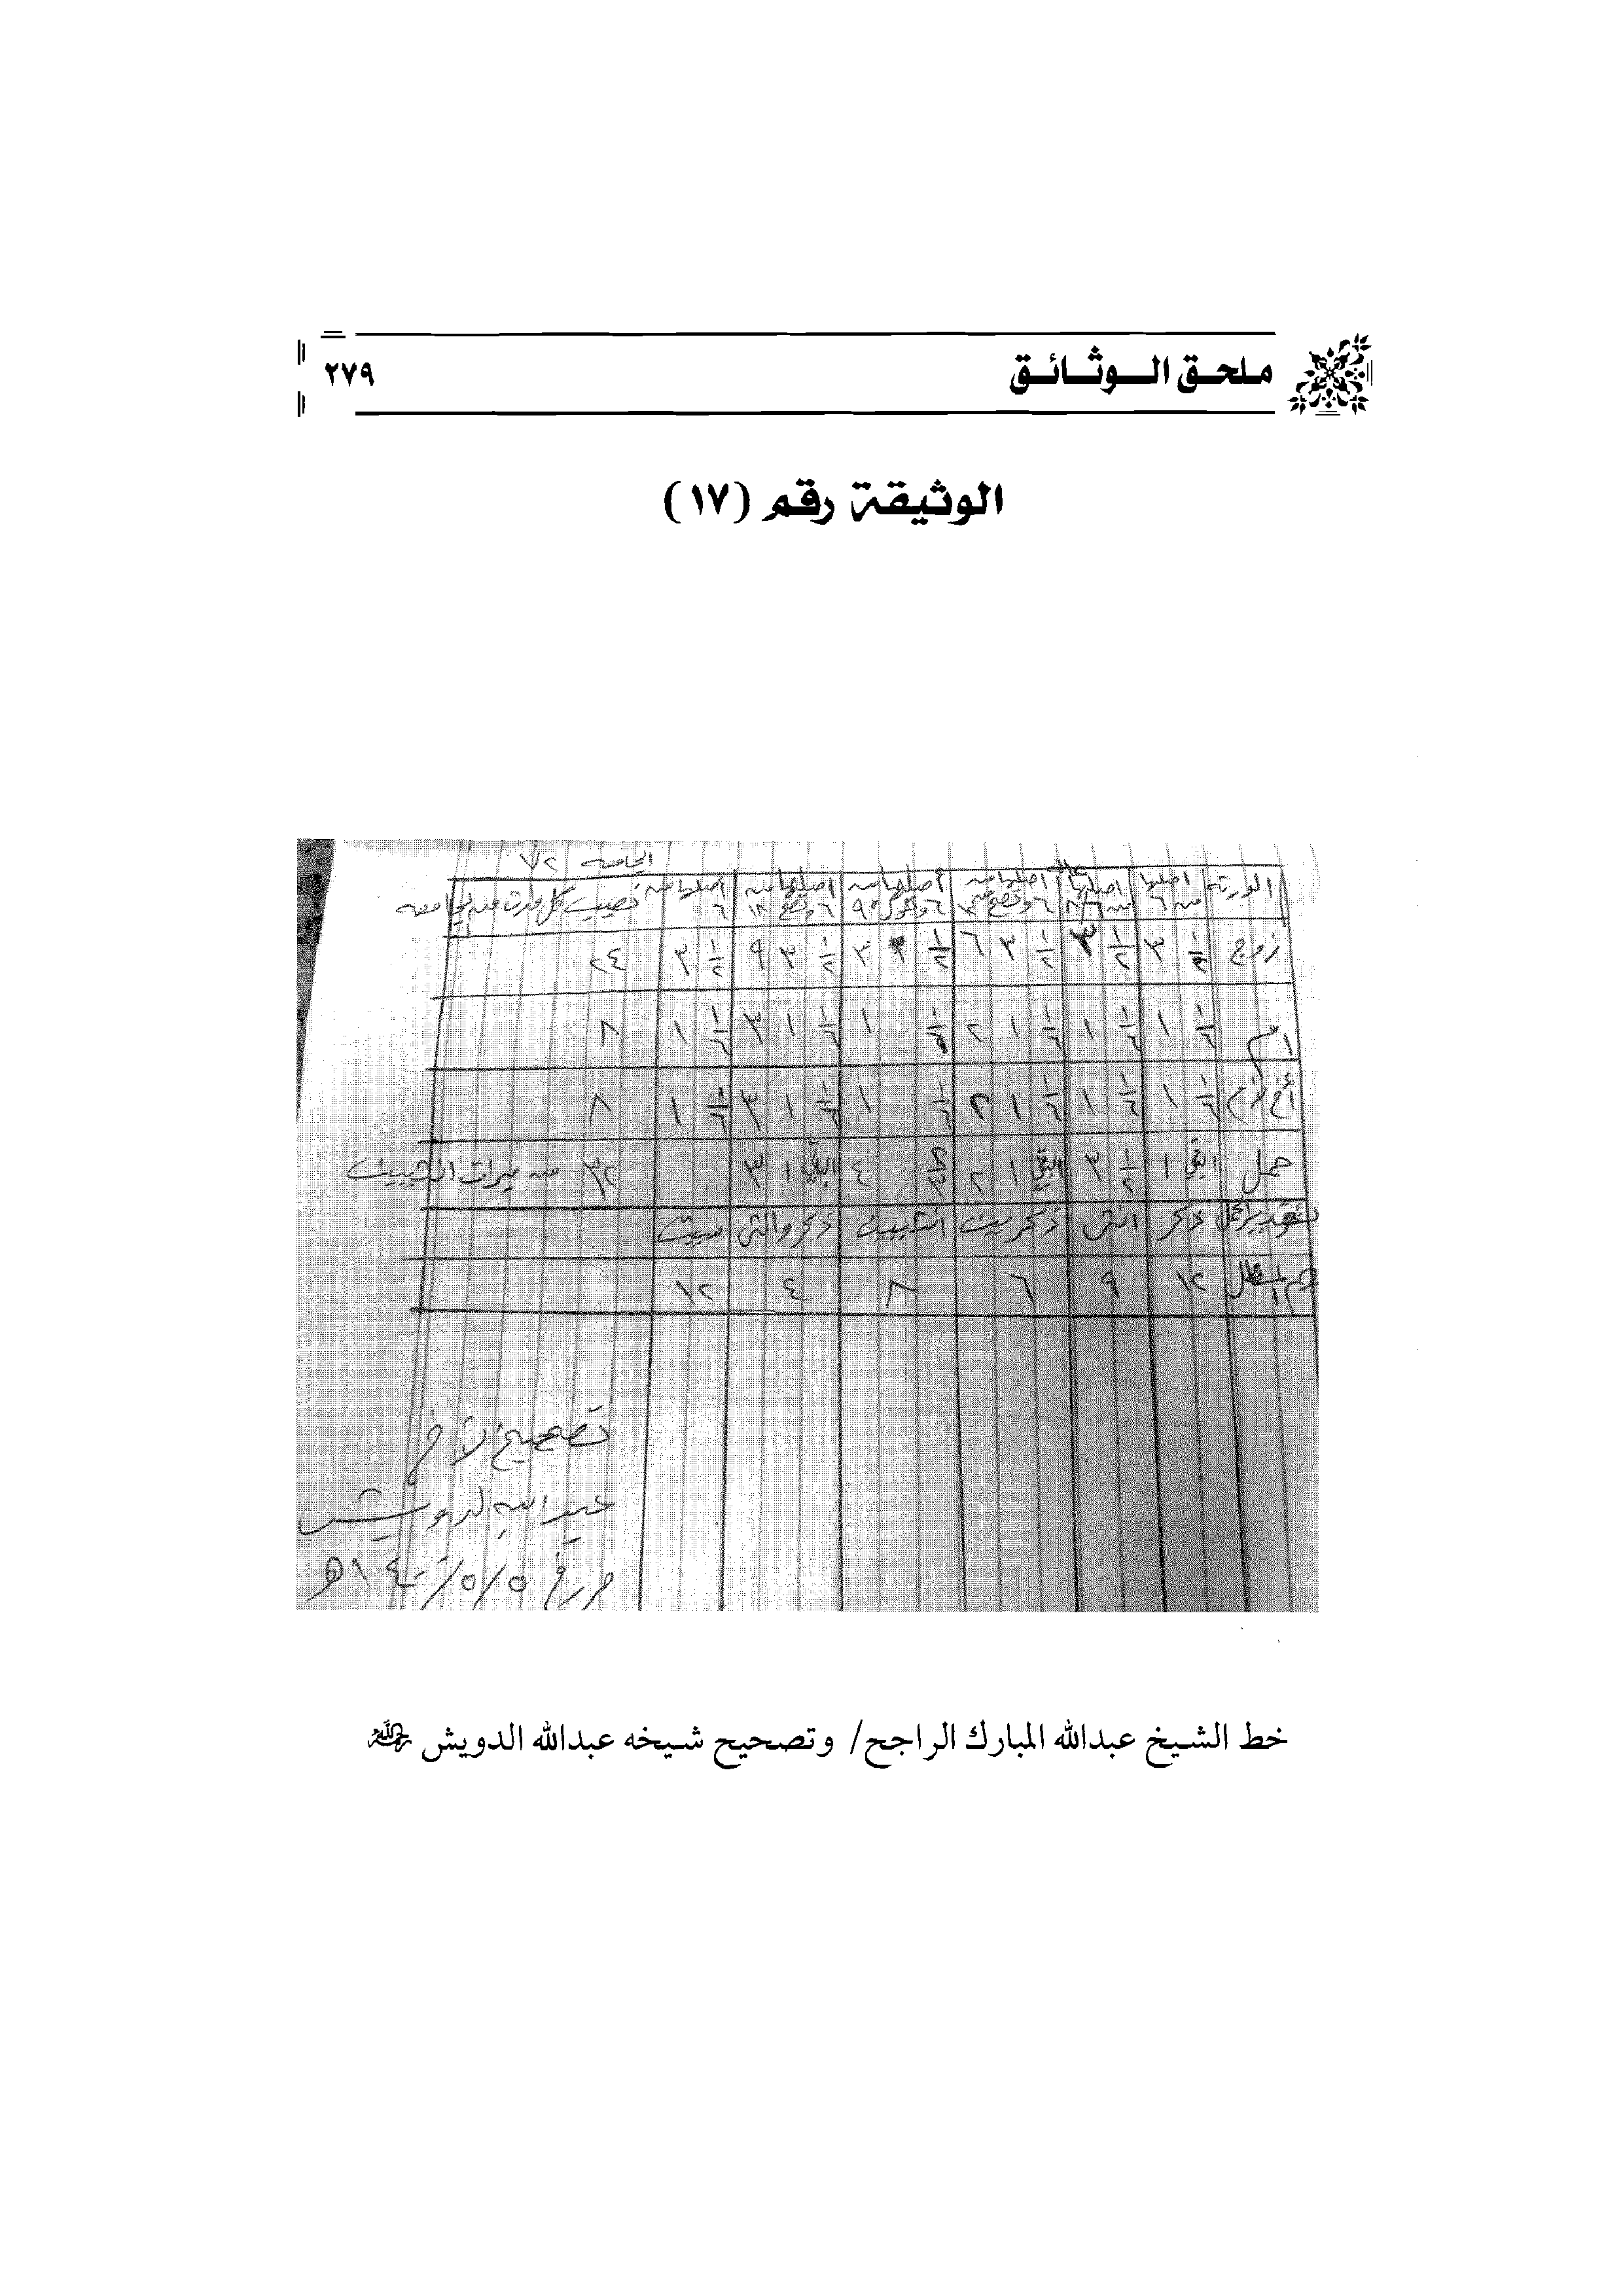 ملحق الوثائق
٢٧٩
الوثيقة رقم (١٧)
الجامعة ٧٢
الورثة اصلها من ٦ اصلها من ٦ ٨ اصلها من ٦ وتصح من ١٢ اصلها من ٦ وتعول ٩ اصلها من ٦ وتصح ١٨ اصلها من ٦ نصيب كل وارث من الجامعة
زوج ١/٢ ٣ ١/٢ ٣ ١/٢ ٣ ٦ ١/٢ ٣ ١/٢ ٣ ٩ ١/٢ ٣ ٢٤
أم ١/٦ ١ ١/٦ ١ ١/٦ ١ ٢ ١/٦ ١ ١/٦ ١ ٣ ١/٦ ١ ٨
أخ لأم ١/٦ ١ ١/٦ ١ ١/٦ ١ ٢ ١/٦ ١ ١/٦ ١ ٣ ١/٦ ١ ٨
حمل الباقي ١ ١/٢ ٣ الباقي ١ ٢ ٤ الباقي ١ ٣ ٣٢ من ميراث انثيين
ذكر انثى ذكرين انثيين ذكر وانثى ميت
١٢ ٩ ٦ ٨ ٤ ١٢
تصحيح الأخ
عبدالله الدويش
حرر في ٥/٥/١٤٠٠هـ
خط الشيخ عبدالله المبارك الراجح/ وتصحيح شيخه عبدالله الدويش رحمه الله